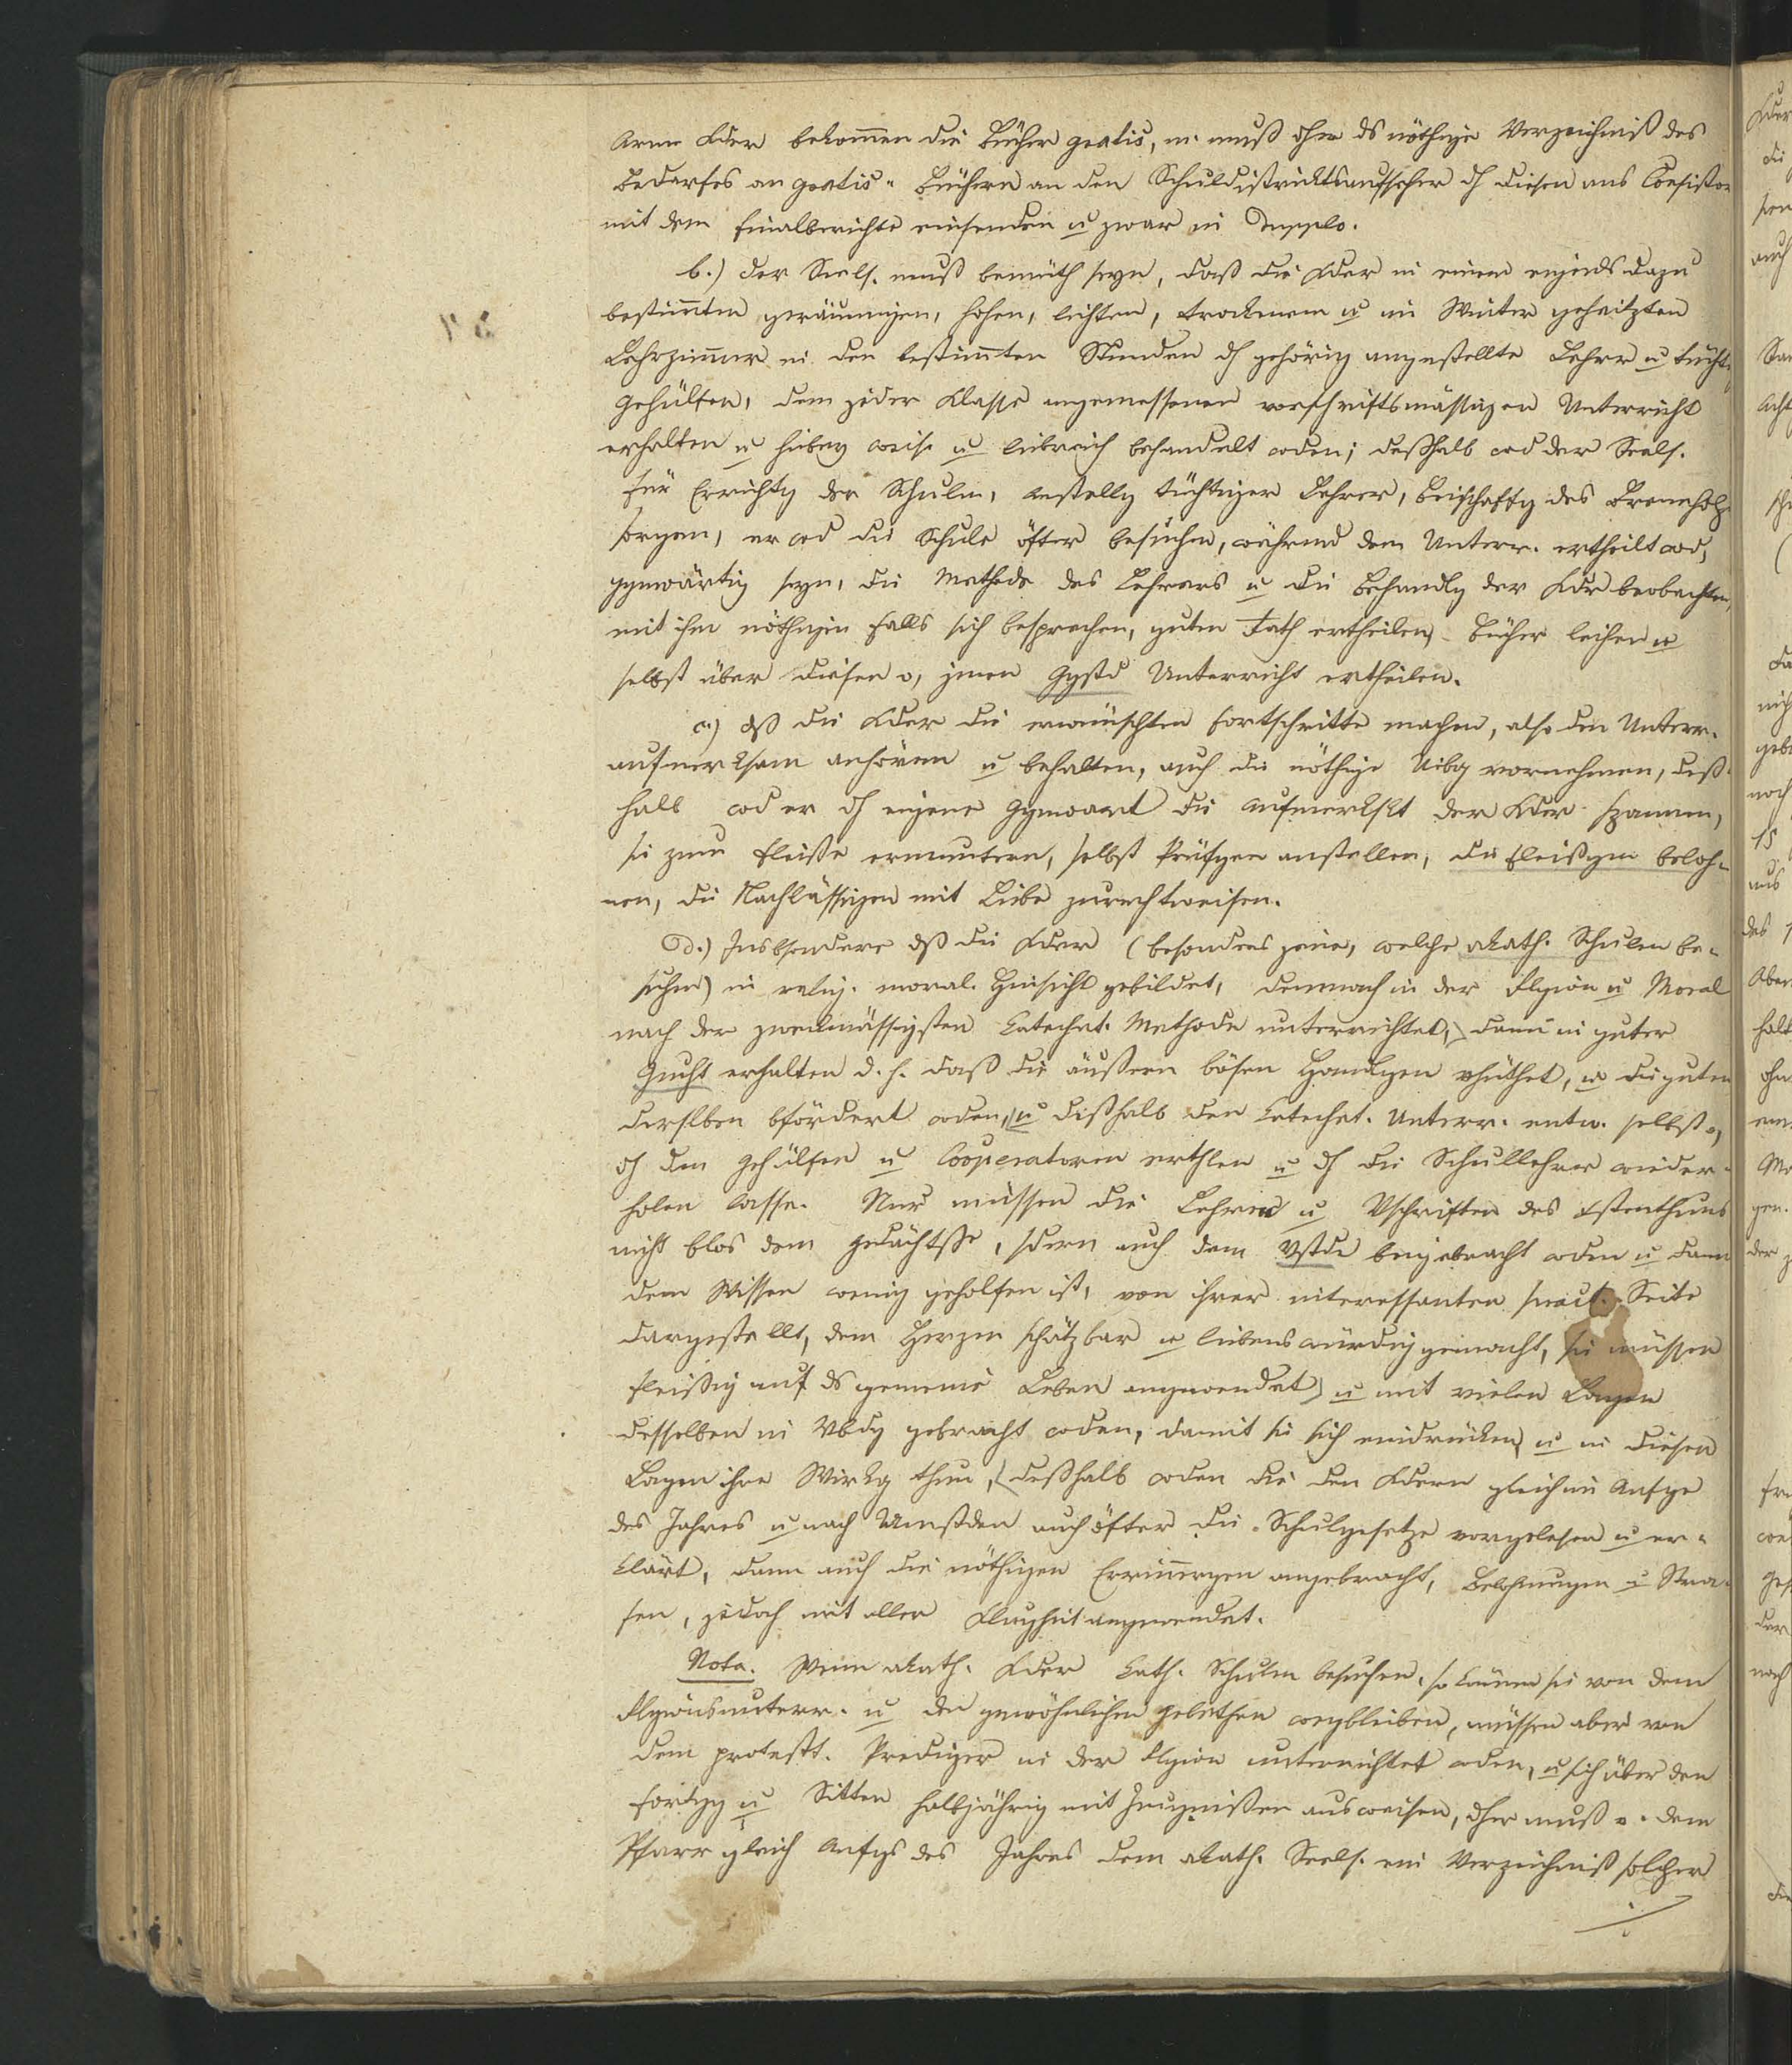 Arme Kder bekom̄en die Bücher gratis, m. muß ohne ds nöthige Verzeichniß des
Bedarfes an gratis-Büchern an den Schuldistriktsaufseher dch diesen ans Consistor
mit dem Finalberichte einsenden u zwar in Dupplo.
b.) der Seels. muß bemüth seyn, daß die Kder in einem eigends dazu
bestim̄ten geräumigen, hohen, lichten, trockenen u im Winter geheitzten
Lehrzim̄er in den bestim̄ten Stunden dch gehörig angestellte Lehrer u tücht.
Gehülfen, dem jeder Klasse angemessenen vorschriftsmässigen Unterricht
erhalten u hiebey weise u liebreich behandelt wden; deßhalb wd der Seels.
für Errichtg der Schulen, Anstellg tüchtiger Lehrer, Beischaffg des Brennholz
sorgen, er wd die Schule öfter besuchen, während dem Unterr. ertheilt wd,
ggnwärtig seyn, die Methode des Lehrers u die Behandlg der Kder beobachten,
mit ihm nöthigen Falls sich besprechen, guten Rath ertheilen, Bücher leihen u
selbst über diesen o, jenen Ggstd Unterricht ertheilen.
c.) dß die Kder die erwünschten Fortschritte machen, also den Unterr.
aufmerksam anhören u behalten, auch die nöthige Uibg vornehmen, deß-
halb wd er dch eigene Ggnwart die Aufmerkskt der Kder spannen,
sie zum Fleiße ermuntern, selbst Prüfgen anstellen, die Fleißigen beloh-
nen, die Nachlässigen mit Liebe zurechtweisen.
d.) Insbsondere dß die Kder (besonders jene, welche akath. Schulen be-
suchen) in relig. moral. Hinsicht gebildet, demnach in der Rlgion u Moral
nach der zweckmässigsten Katechet. Methode unterrichtet, dann in guter
Zucht erhalten d. h. daß die äußern bösen Handlgen vhüthet, u die guten
derslben bfördert wden, u dißhalb den Katechet. Unterr. entw. selbst o,
dch den Gehülfen u Cooperatoren erthlen u dch die Schullehrer wieder-
holen lasse. Nur müssen die Lehren u Vschriften des Xstenthums
nicht blos dem Gedächtße, sdern auch dem Vstde beygebracht wden u dann
dem Wissen wenig geholfen ist, von ihrer interessanten pract. Seite
dargestellt, dem Herzen schätzbar u liebenswürdig gemacht, sie müssen
fleißig auf ds gemeine Leben angewendet, u mit vielen Lagen
desselben in Vbdg gebracht wden, damit sie sich eindrücken u in diesen
Lagen ihre Wirkg thun, deßhalb wden die den Kdern gleich im Anfge
des Jahres u nach Umstden auch öfter die Schulgesetze vorgelesen u er-
klärt, dann auch die nöthigen Erin̄ergen angebracht, Belohnungen u Stra-
fen, jedoch mit aller Klugheit angewendet.
Nota. Wenn akath. Kder kath. Schulen besuchen, so können sie von dem
Rlgionsunterr. u den gewöhnlichen Gebethen wegbleiben, müssen aber von
dem protestt. Prediger in der Rlgion unterrichtet wden, u sich über den
Fortgg u Sitten halbjährig mit Zeugnißen ausweisen, dher muß v. dem
Pfarr gleich Anfgs des Jahres dem akath. Seels. ein Verzeichniß solcher